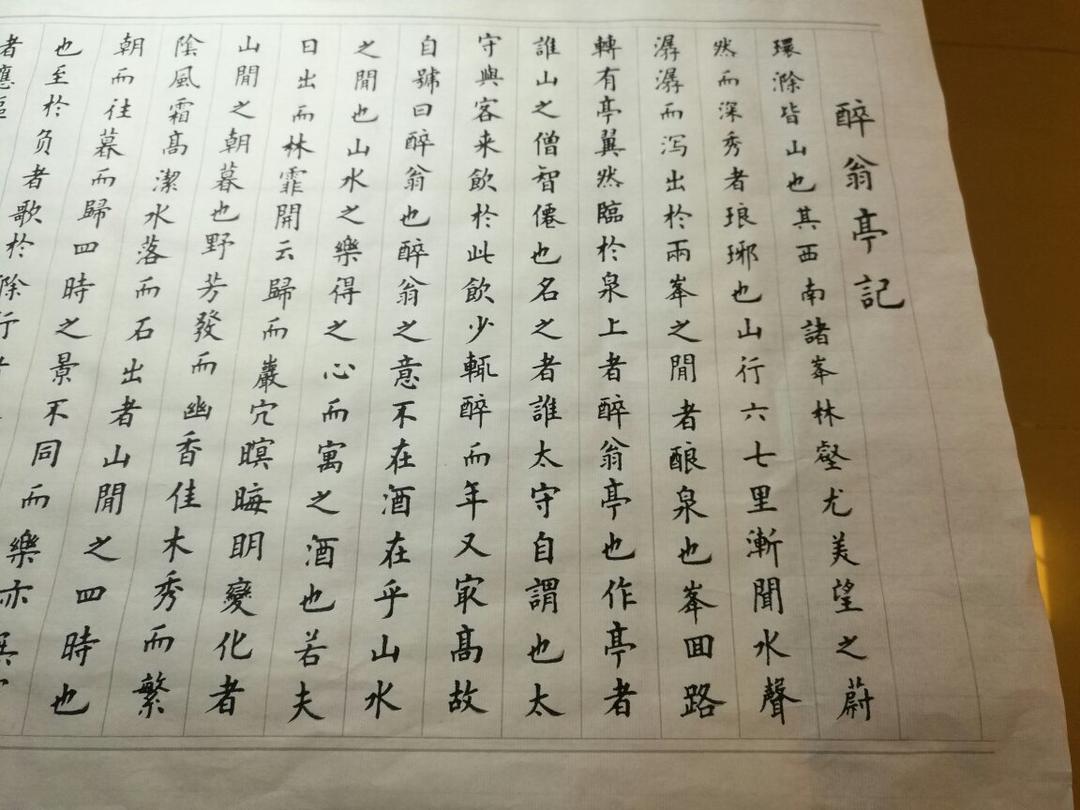 醉翁亭記
環滁皆山也其西南諸峯林壑尤美望之蔚
然而深秀者琅琊也山行六七里漸聞水聲
潺潺而泻出於兩峯之間者酿泉也峯回路
轉有亭翼然臨於泉上者醉翁亭也作亭者
誰山之僧智僊也名之者誰太守自謂也太
守與客来飲於此飲少輒醉而年又冣高故
自號曰醉翁也醉翁之意不在酒在乎山水
之間也山水之樂得之心而寓之酒也若夫
日出而林霏開云歸而巖穴暝晦明變化者
山間之朝暮也野芳發而幽香佳木秀而繁
陰風霜高潔水落而石出者山間之四時也
朝而往暮而歸四時之景不同而樂亦
也至於负者歌於滁行
者應